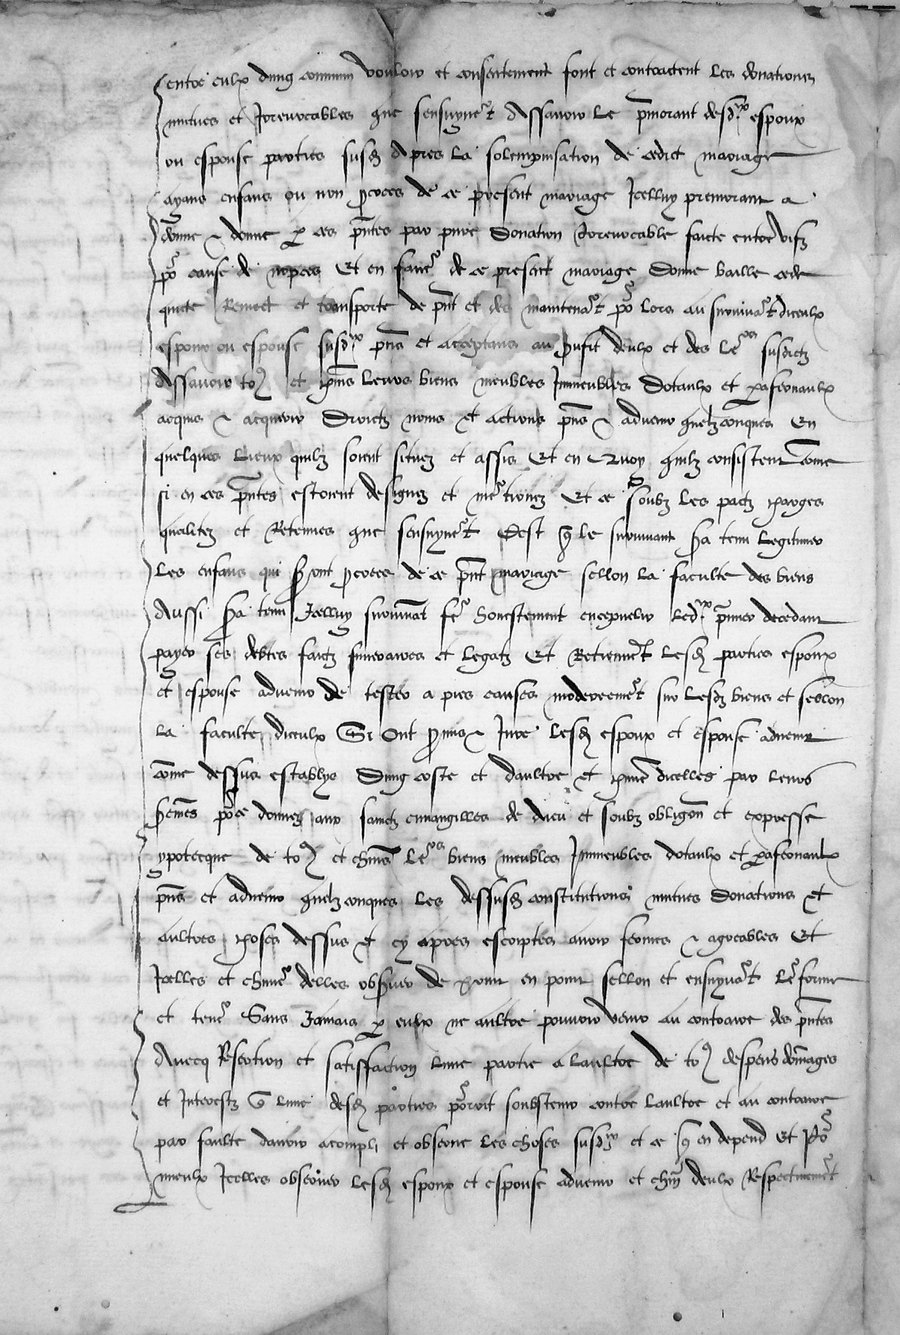 entre eulx dung commun vouloir et consentement font et contractent les donations
mutues et Irrevocables que sensuyvent Assavoir le pmorant desdz espoux
ou espouse parties susd Apres la solempnisation de cedict mariage
ayans enfans ou non procees de ce present mariage Icelluy premorant a
donne & donne p ces pntes par pure donation Irrevocable faicte entre vifz
po cause de nopces Et en faver de ce present mariage donne baille cede
quicte Remect et transporte de pnt et des maintenat po lors au survivat diceulx
espoux ou espouse susdz pns et acceptans au prufit deulx et des les susdictz
Assavoir to et chms leurs biens meubles Immeubles dotaulx et parafernaulx
acquis & acquerir Droictz noms et actions pns & advenir quelzconques En
quelques Lieux quilz soient situez et assis Et en Quoy quilz consistent come
si en ces pntes estoient designez et metionez Et ce soubz les pactz charges
qualitez et Retenues que sensuyvet Cest q le survivant sa tenu legitimer
Les enfans qui sont procees de ce pnt mariage sellon la faculte des biens
Aussi sa tenu Icelluy survivat fe honestement ensepvelir led pmier decedant
payer ses debtes faictz funeraires et legatz Et Retiennet lesd parties espoux
et espouse advenir de tester a pies causes moderement sur lesd biens et sellon
la faculte diceulx Si Ont pmis & Jure lesd espoux et espouse advenir
come dessus establys Dung coste et daultre et chune dicelles par leurs
sermes pce donnez aux sainctz euvangilles de dieu et soubz obligon et expresse
ypotecque de to et chms les biens meubles Immeubles dotaulx et parafernaulx
pns et advenir quelzconques les dessusd constitutions mutues donations et
aultres choses dessus et cy apres escriptes avoir fermes & agreables Et
Icelles et chune delles obsver de point en point sellon et ensuyvat le forme
et tener Sans Jamais p eulx ne aultre pouvoir venir au contraire des pntes
Avecq Refection et satisffaction Lune partie a laultre de to despens domages
et Interestz Si Lune desd parties poroit soubstenir contre laultre et au contraire
par faulte davoir acompli et observe les choses susdz et ce q en depend Et Po
mieulx Icelles observer lesd espoux et espouse advenir et chm deulx Respectivemet